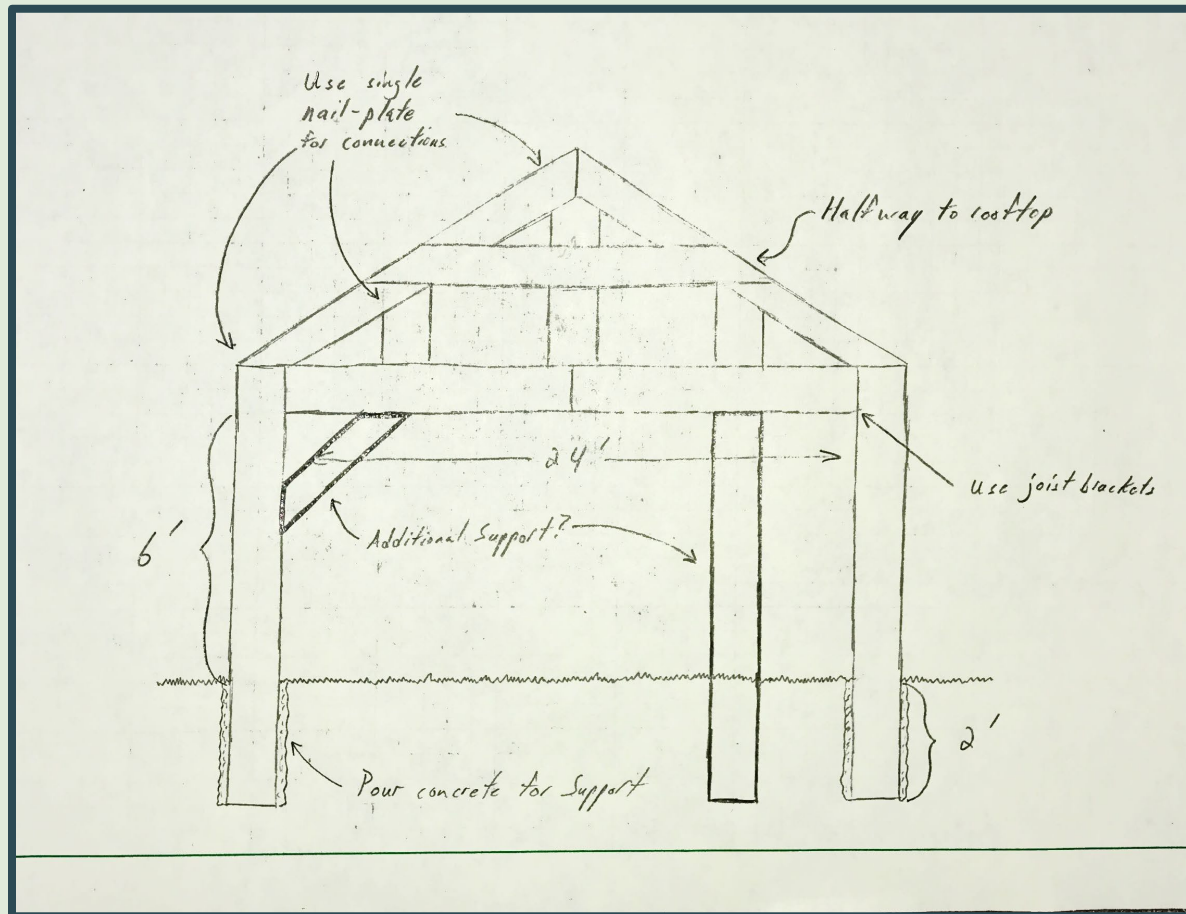 Use single
nail-plate
for connections
Halfway to rooftop
24'
Use joist brackets
6'
Additional Support?
2'
Pour concrete for Support